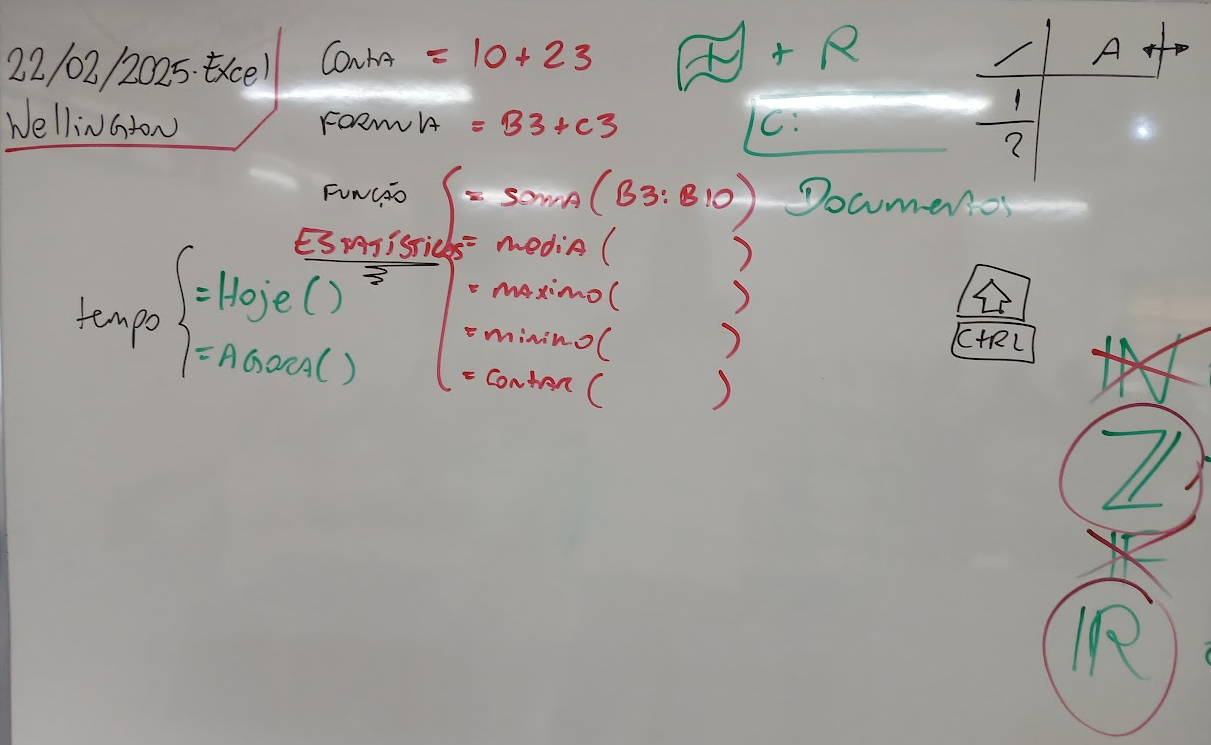 22/02/2025.Excel
Wellington
Conta = 10+23
FORMULA = B3+C3
FUNÇÃO
ESTATÍSTICAS
= SOMA(B3:B10)
= MEDIA( )
= MAXIMO( )
= MINIMO( )
= CONTAR( )
tempo
= Hoje()
= AGORA()
+ R
C:
Documentos
A
1
2
CTRL
IN
Z
IF
IR